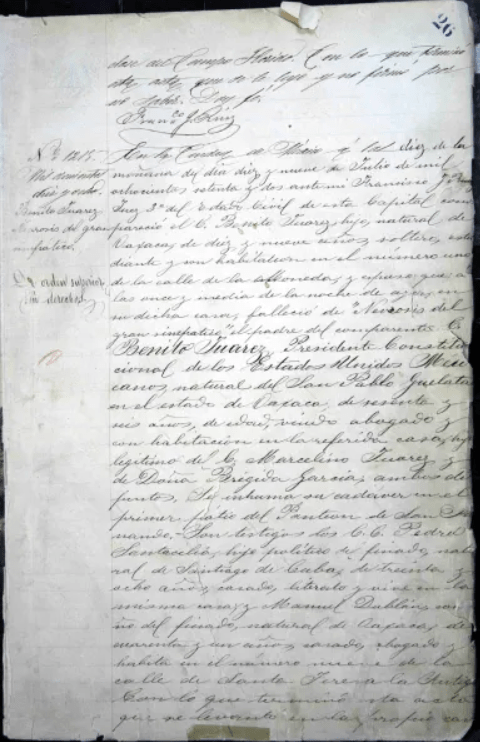 26
dose del Campo Florido. Con lo que terminó
esta acta, que se le leyó y no firmó por
no saber. Doy fé.
Franco. J. Ruiz
No. 1215.
Mil doscientos
diez y
Benito Juarez
Neurosis del gran
simpatico.
De orden superior
sin derechos.
En la Ciudad de Mexico á las diez de la
mañana del dia diez y nueve de Julio de mil
ochocientos setenta y dos ante mi Francisco J. Ruiz
Juez 3o. del Estado Civil de esta Capital com
pareció el C. Benito Juarez, hijo, natural de
Oaxaca, de diez y nueve años, soltero, estu
diante y con habitacion en el numero uno
de la calle de la Moneda, y espuso: que á
las once y media de la noche de ayer, en
su dicha casa, falleció de "Neurosis del
gran simpatico," el padre del compareciente C.
Benito Juarez, Presidente Constitu
cional de los Estados Unidos Mexi
canos, natural del San Pablo Guelatao
en el estado de Oaxaca, de sesenta y
seis años, de edad, viudo abogado y
con habitacion en la referida casa, hijo
legitimo del C. Marcelino Juarez y
de Doña Brigida Garcia, ambos di
funtos. Se inhuma su cadaver en el
primer patio del Panteon de San Fer
nando.- Son testigos los C.C. Pedro
Santacilia, hijo politico del finado, natu
ral de Santiago de Cuba, de treinta y
ocho años, casado, literato y vive en la
misma casa, y Manuel Dublán, cu
ño del finado, natural de Oaxaca, de
cuarenta y un años, casado, abogado y
habita en el numero nueve de la
calle de Santa Teresa la Antigua
Con lo que terminó esta acta
que se levantó en la propia ca